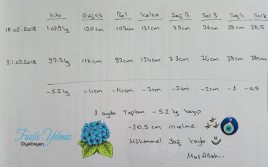 kilo Göğüs Bel Kalça Sağ B Sol B Sağ K Sol K
18.02.2018 102.9kg 120cm 109cm 131cm 75cm 76cm 39cm 38,5
21.03.2018 97.7kg 116cm 97cm 124cm 73cm 74cm 38cm 38cm
-5.2kg -4cm -2cm -2cm -1 -0,5
1 ayda Toplam -5.2 kg kayıp
incelme
Mükemmel Sağ kaydı
MaşAllah..
Fazile Yılmaz
Diyetisyen